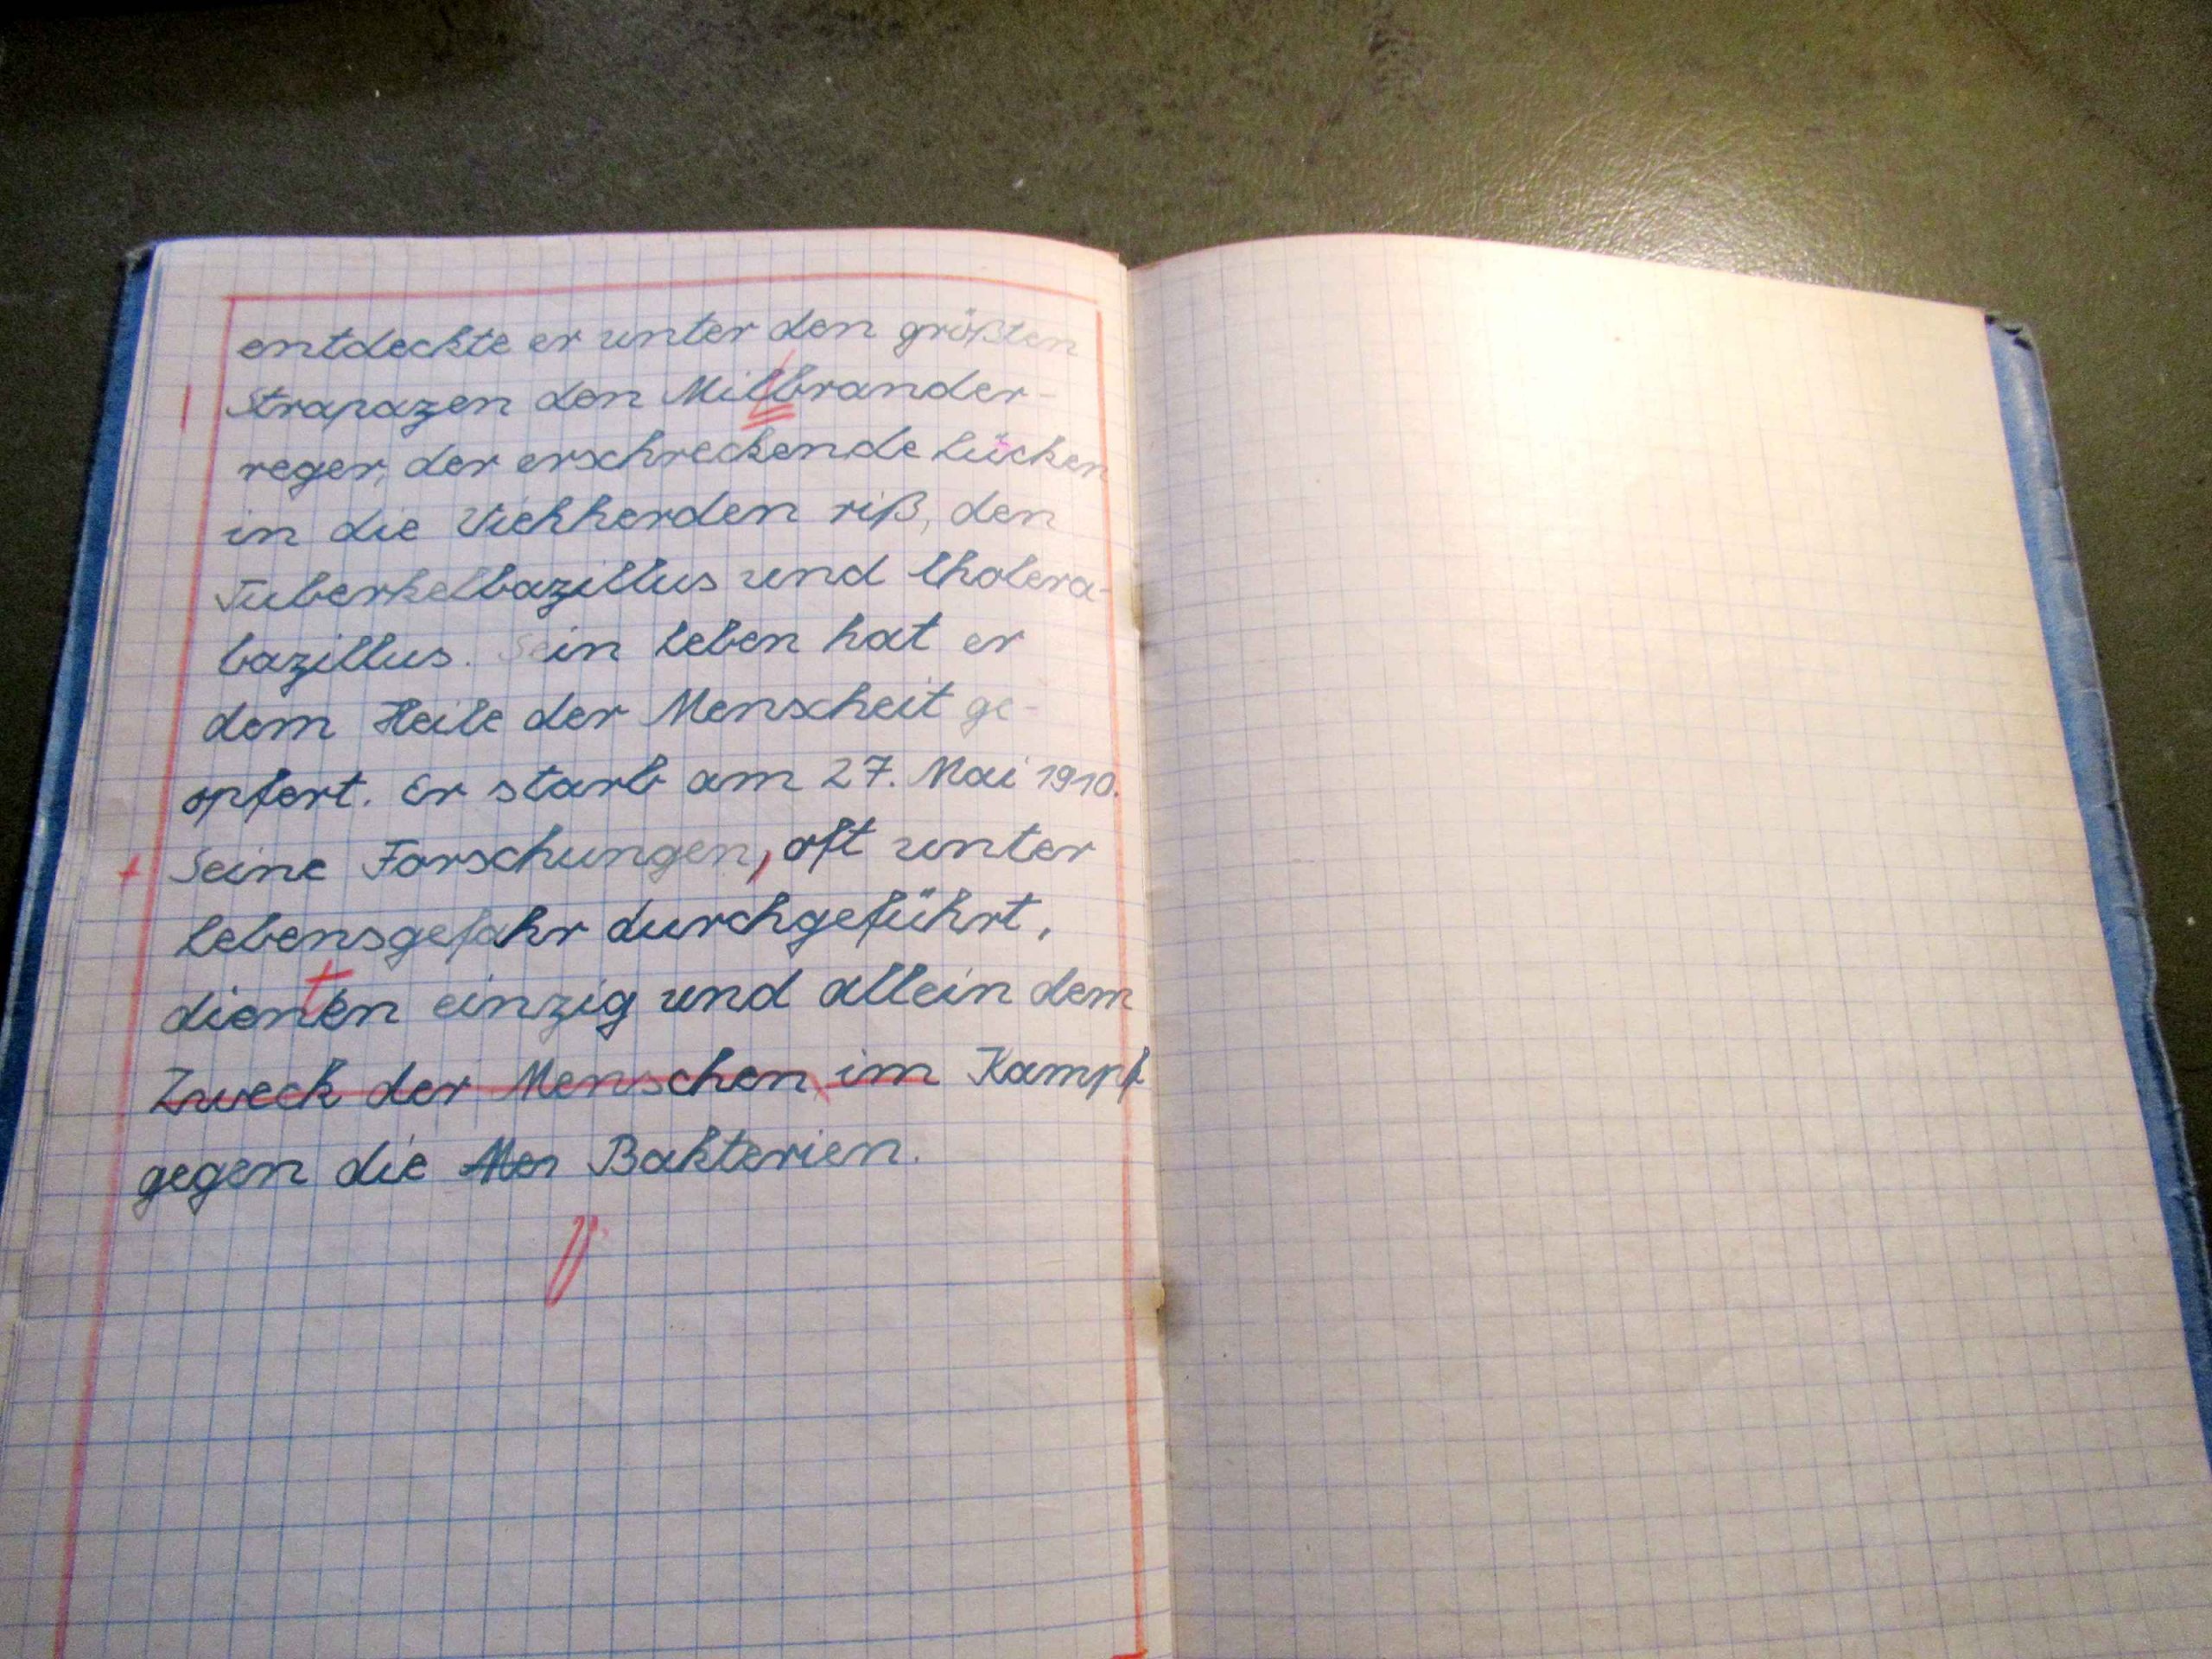 entdeckte er unter den größten
Strapazen den Milbrander-
reger, der erschreckende Lücken
in die Viehherden riß, den
Tuberkelbazillus und Cholera-
bazillus. Sein Leben hat er
dem Heile der Menscheit ge-
opfert. Er starb am 27. Mai 1910.
Seine Forschungen, oft unter
Lebensgefahr durchgeführt,
dienten einzig und allein dem
Zweck der Menschen im Kampf
gegen die Men Bakterien.